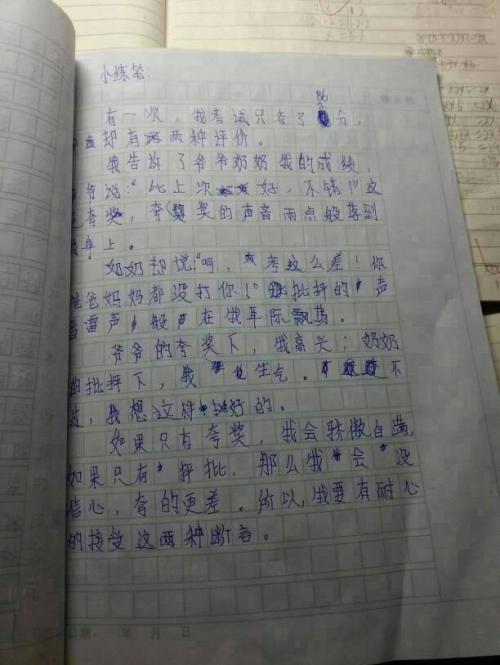 小练笔:
86
有一次,我考试只考了分,
却有两种评价。
我告诉了爷爷奶奶我的成绩,
爷说:“比上次好,不错!”这
夸奖,夸奖的声音雨点般落到
耳上。
奶奶却说:“啊,考这么差!你
爸妈妈都没打你!”批抨的声
雷声般在我耳际飘荡。
爷爷的夸奖下,我高兴;奶奶
的批抨下,我生气。不
过,我想这样挺好的。
如果只有夸奖,我会骄傲自满,
如果只有抨批,那么我会没
信心,考的更差。所以,我要有耐心
的接受这两种断言。
日期: 年 月 日